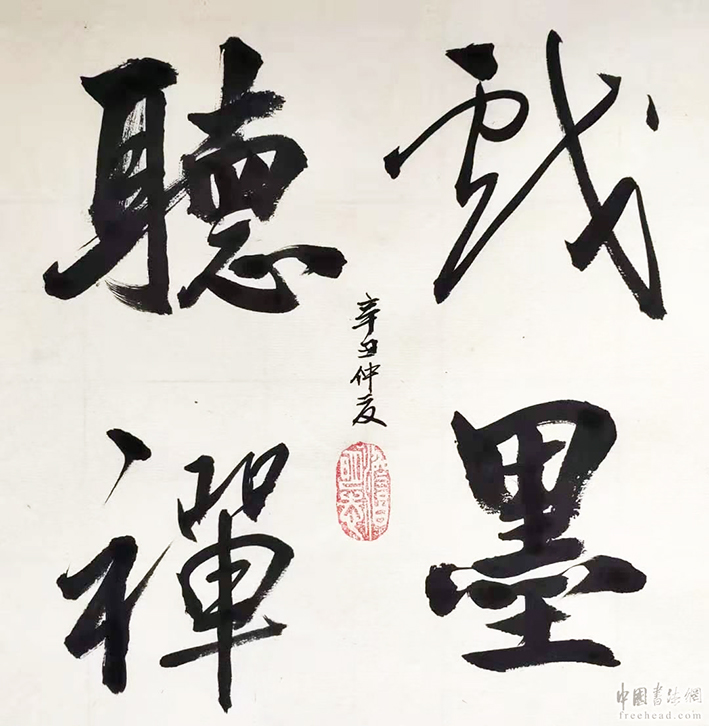 戲墨
聽禪
辛丑仲夏
中國書法網
freehead.com